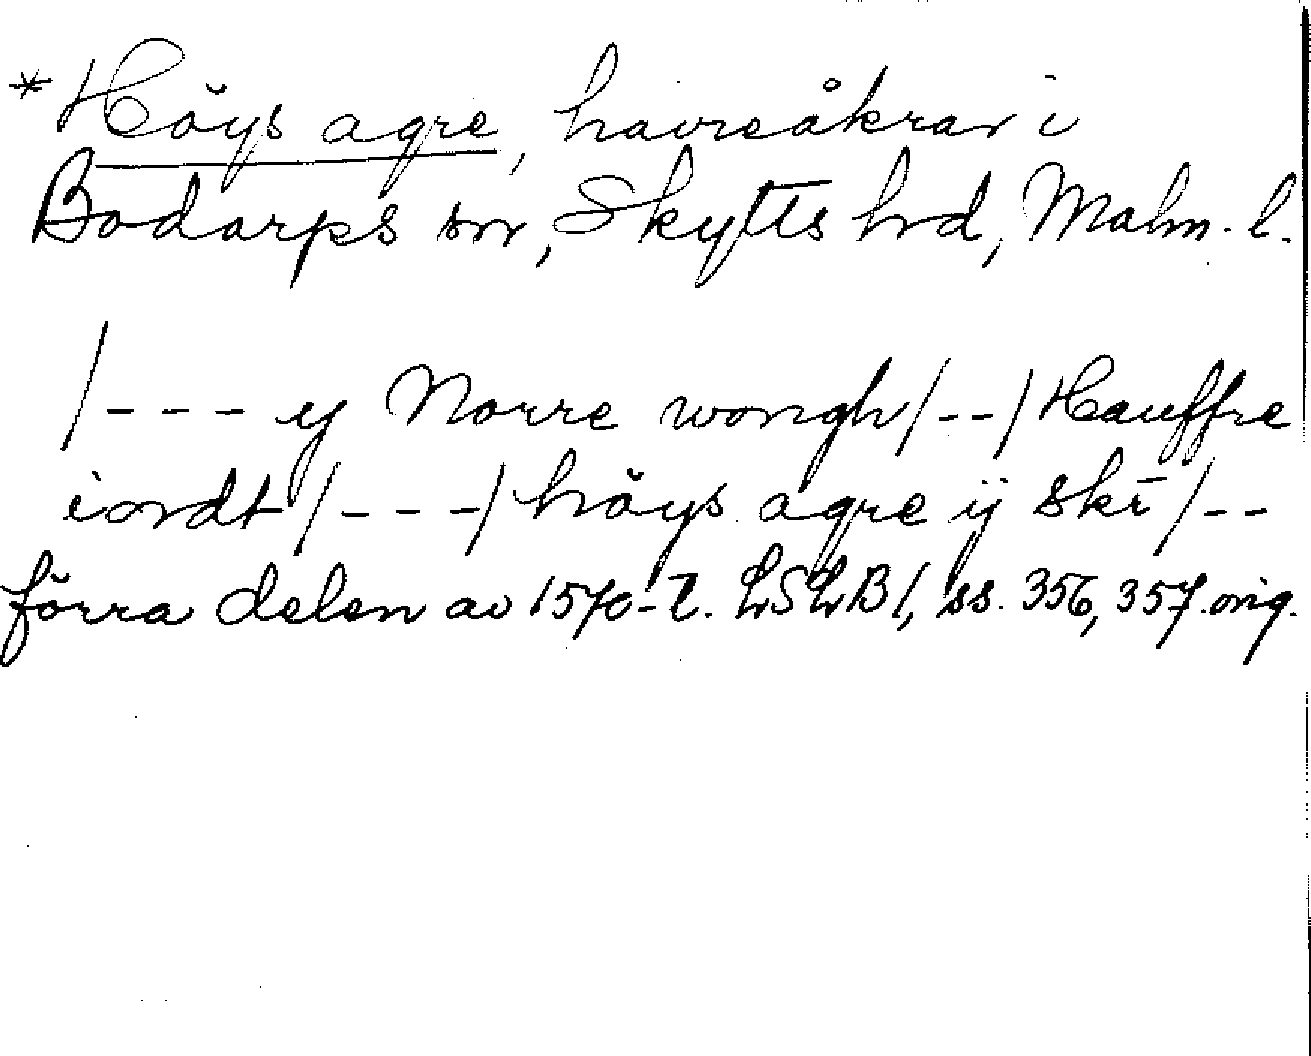 *Höys agre, havreåkrar i
Bodarps sn, Skytts hd, Malm. l.
/--- y Norre wongh /--/ Hauffre
iordt /---/ höys agre ij skr̄ /--
förra delen av 1570-t. LSLB I, ss. 356, 357. orig.